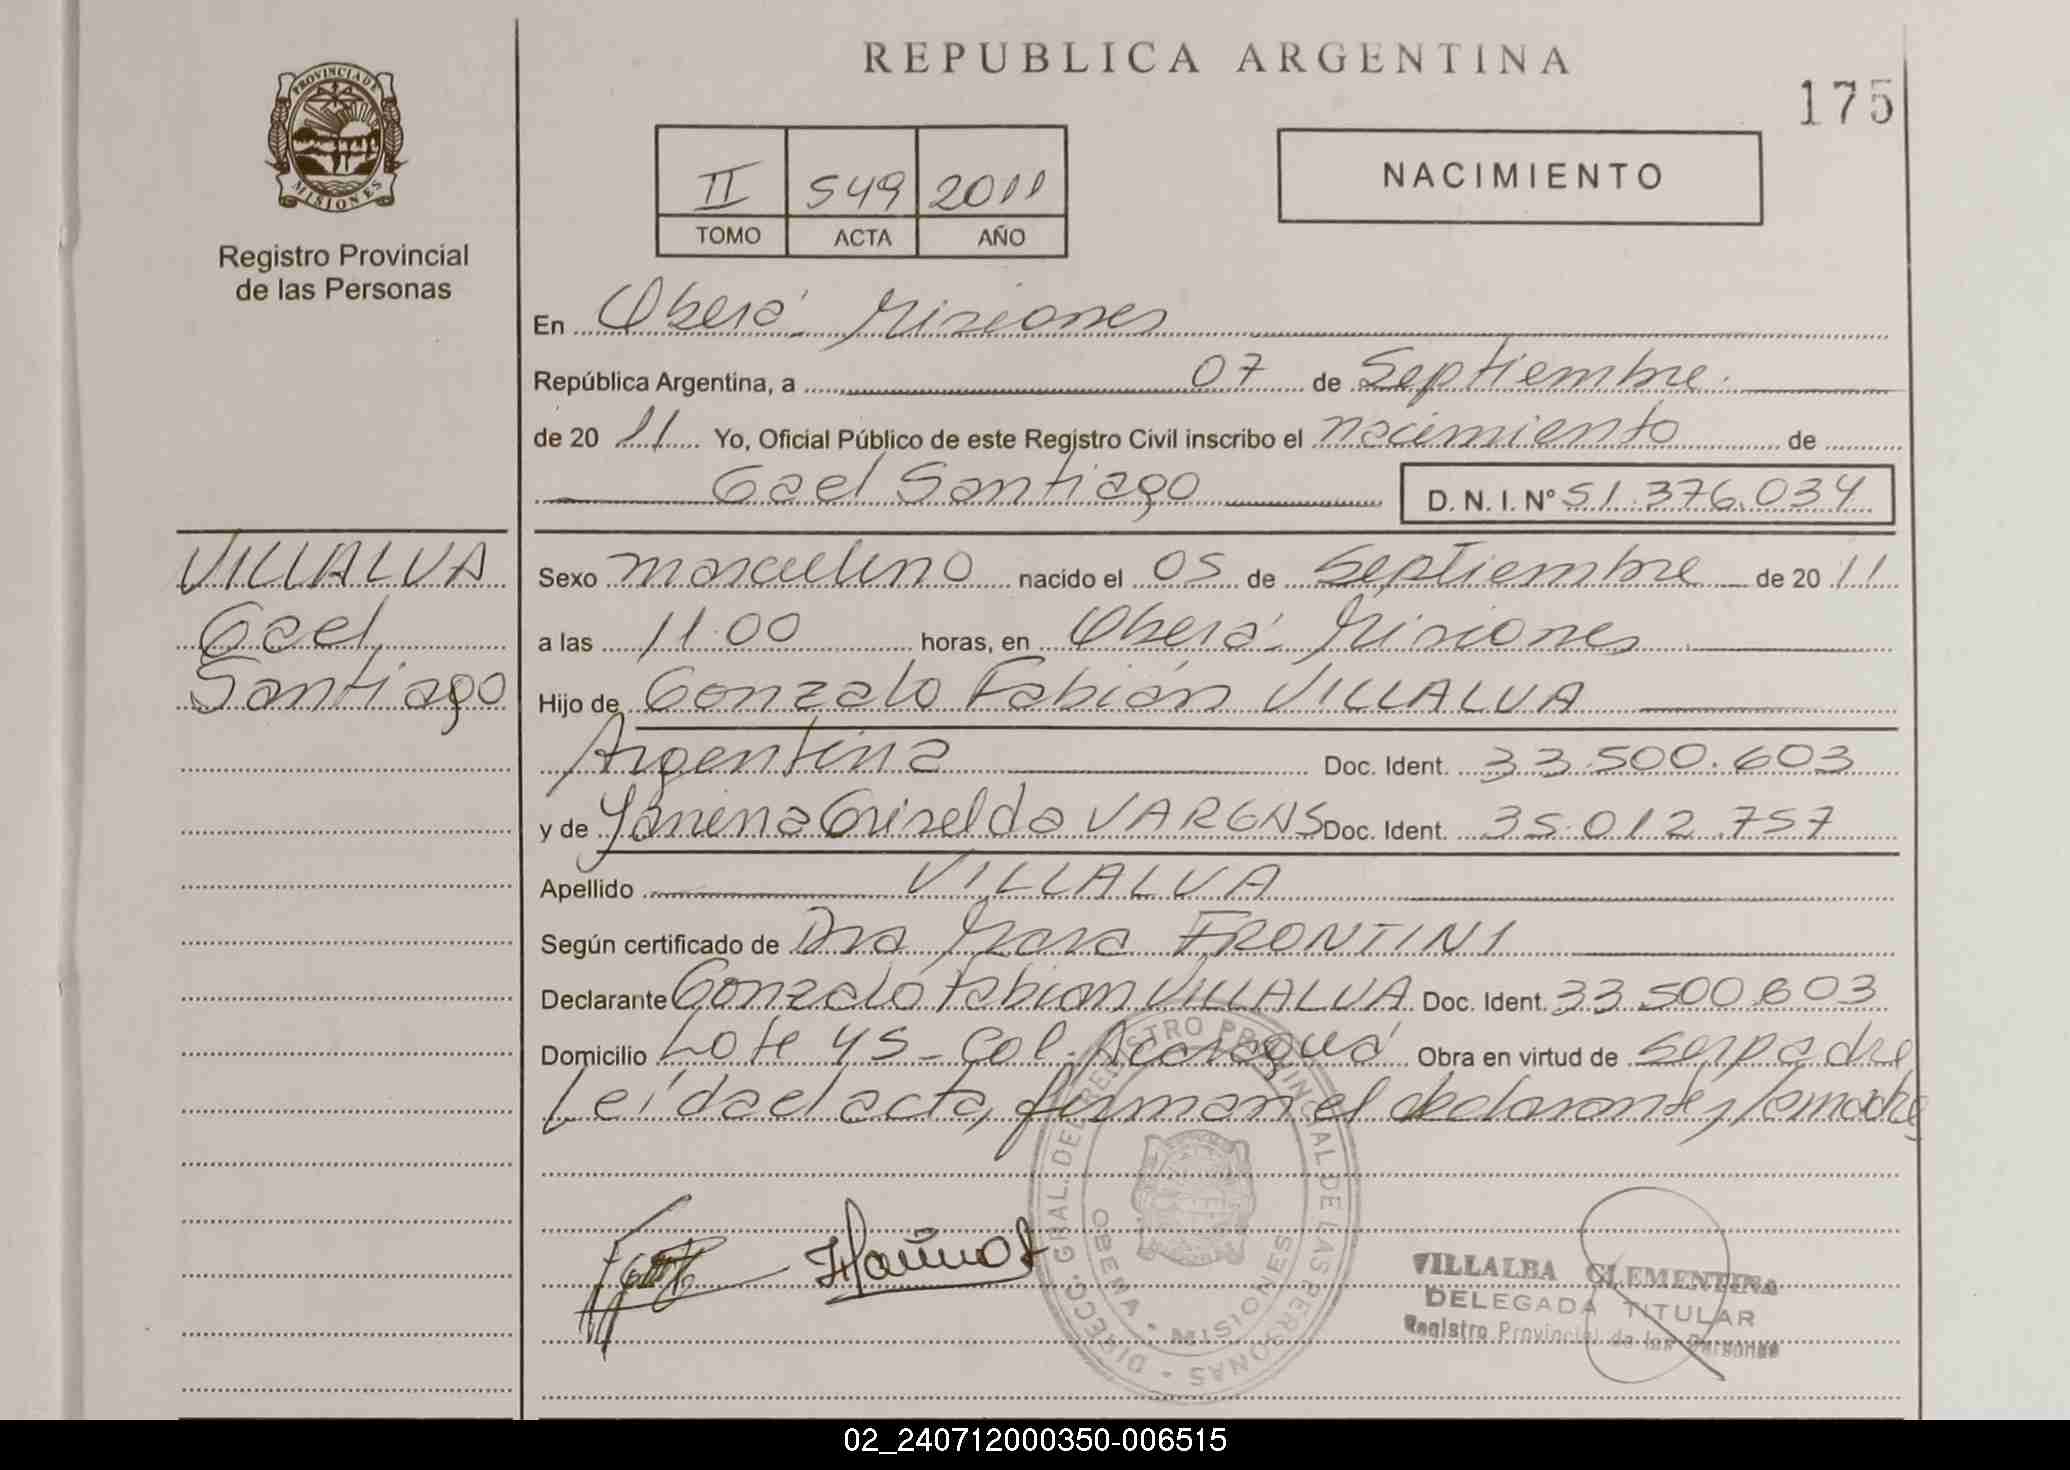 REPUBLICA ARGENTINA
175
PROVINCIA DE
MISIONES
Registro Provincial
de las Personas
II 549 2011
TOMO ACTA AÑO
NACIMIENTO
En Oberá - Misiones
República Argentina, a 07 de Septiembre.
de 20 11 Yo, Oficial Público de este Registro Civil inscribo el nacimiento de
Gael Santiago D. N. I. Nº 51.376.034
VILLALVA
Gael
Santiago
Sexo masculino nacido el 05 de Septiembre de 20 11
a las 11.00 horas, en Oberá - Misiones
Hijo de Gonzalo Fabián VILLALVA
Argentina Doc. Ident. 33.500.603
y de Yanina Griselda VARGAS Doc. Ident. 35.012.757
Apellido VILLALVA
Según certificado de Dra Mara FRONTINI
Declarante Gonzalo Fabian VILLALVA Doc. Ident. 33.500.603
Domicilio Lote 45 - Col. Acaraguá Obra en virtud de ser padre
Leída el acta, firman el declarante y la madre,
DIRECC. GRAL. DEL REGISTRO PROVINCIAL DE LAS PERSONAS -
OBERA - MISIONES
VILLALBA CLEMENTINA
DELEGADA TITULAR
Registro Provincial de las Personas
02_240712000350-006515